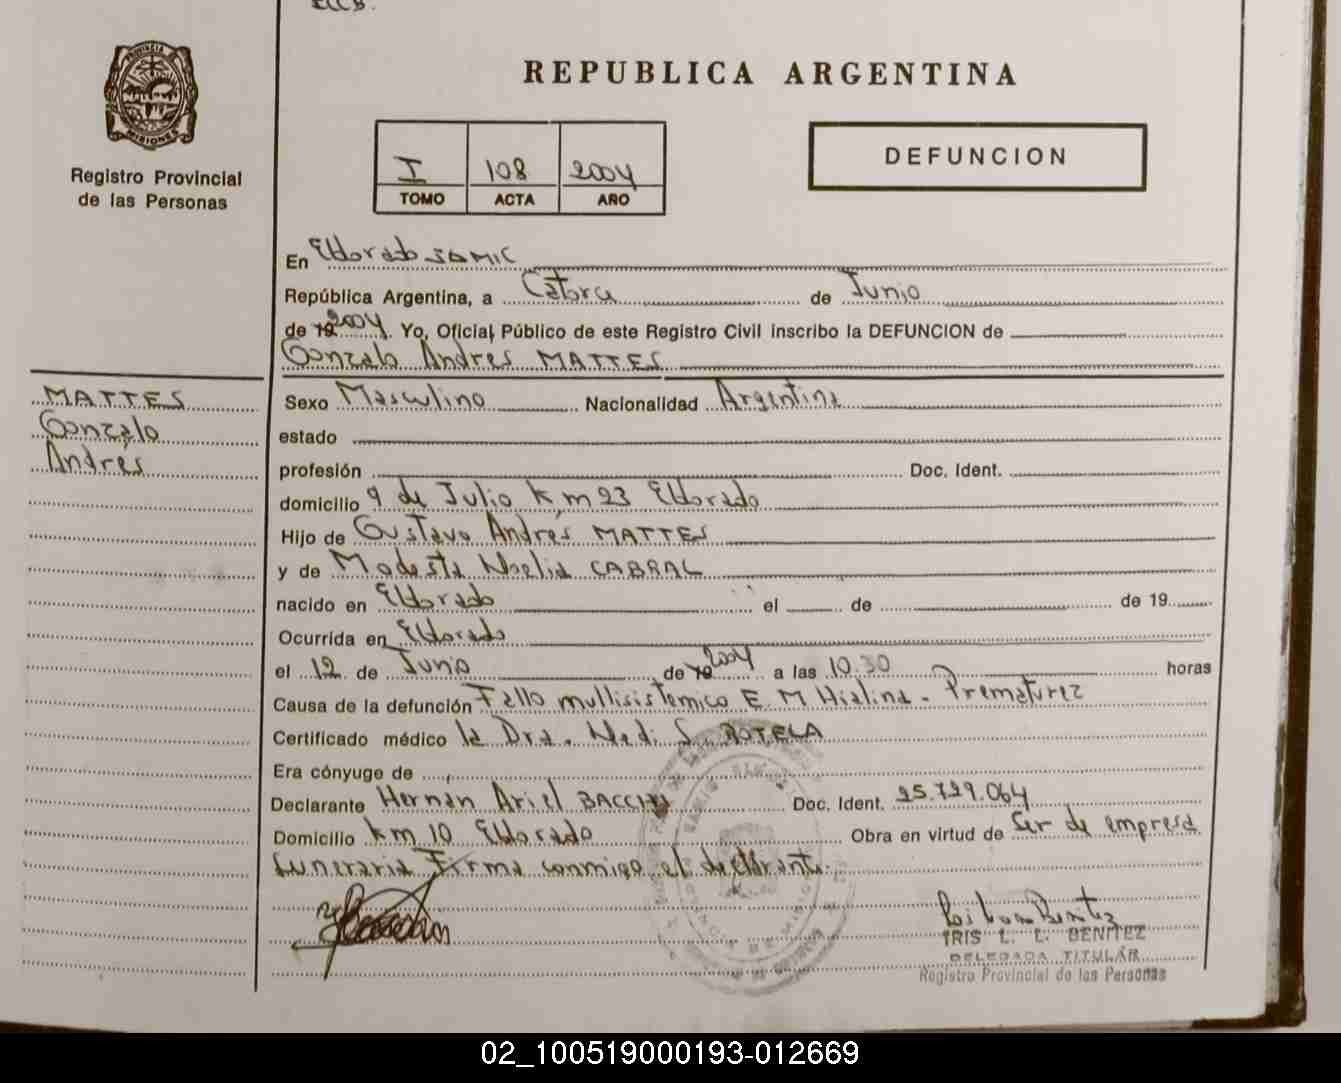 REPUBLICA ARGENTINA
PROVINCIA DE
MISIONES
Registro Provincial
de las Personas
I 108 2004
TOMO ACTA AÑO
DEFUNCION
En Eldorado SAMIC
República Argentina, a Catorce de Junio
de 19 2004. Yo, Oficial Público de este Registro Civil inscribo la DEFUNCION de
Gonzalo Andres MATTES
MATTES
Gonzalo
Andrés
Sexo Masculino Nacionalidad Argentina
estado
profesión Doc. Ident.
domicilio 9 de Julio km 23 Eldorado
Hijo de Gustavo Andrés MATTES
y de Modesta Noelia CABRAL
nacido en Eldorado el de de 19
Ocurrida en Eldorado
el 12 de Junio de 19 2004 a las 10.30 horas
Causa de la defunción Fallo multisistemico E. M Hialina - Prematurez
Certificado médico la Dra. S. ROTELA
Era cónyuge de
Declarante Hernan Ariel Doc. Ident. 25.729.064
Domicilio km 10 Eldorado Obra en virtud de Ser de empresa
funeraria Firma conmigo el declarante.
IRIS L. L. BENITEZ
DELEGADA TITULAR
Registro Provincial de las Personas
02_100519000193-012669